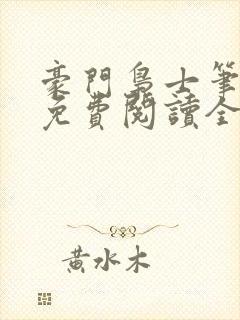 豪門梟士筆
免費閱讀全
黃水木